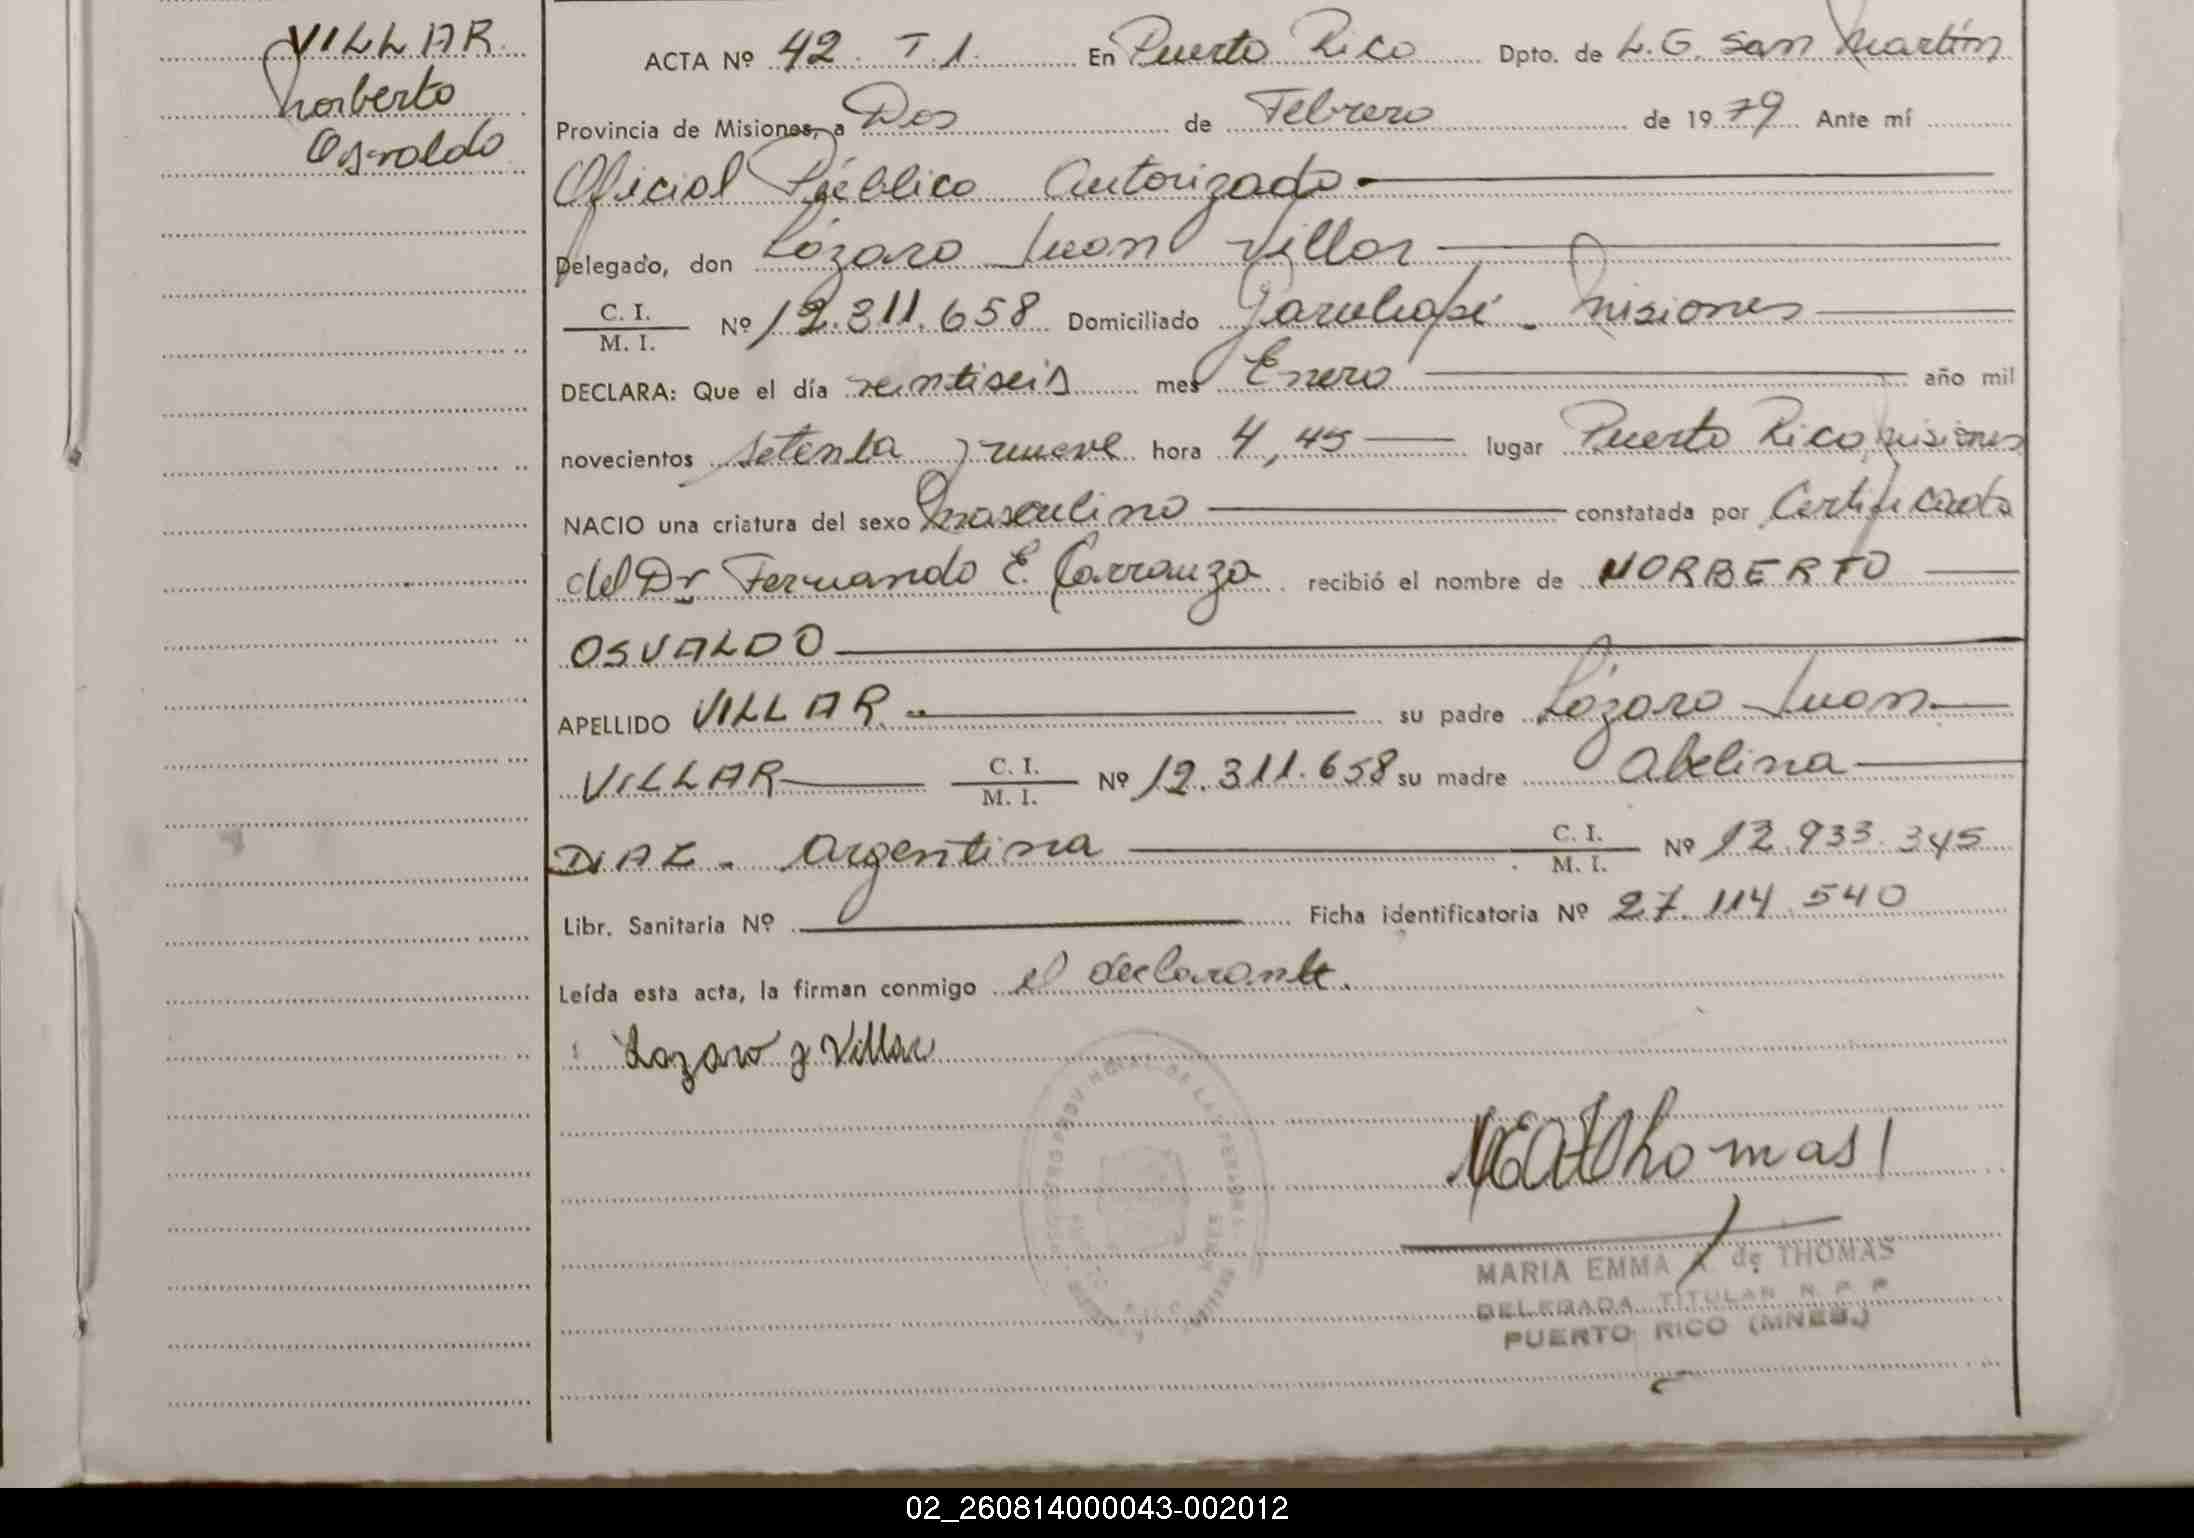 VILLAR
Norberto
Osvaldo
ACTA Nº 42. T.1. En Puerto Rico Dpto. de L.G. San Martín
Provincia de Misiones, a Dos de Febrero de 1979 Ante mí
Oficial Público Autorizado
Delegado, don Lázaro Juan Villar
C. I.
M. I. Nº 12.311.658 Domiciliado Garuhapé - Misiones
DECLARA: Que el día veintiseis mes Enero año mil
novecientos setenta y nueve hora 4,45 lugar Puerto Rico, Misiones
NACIO una criatura del sexo Masculino constatada por Certificado
del Dr Fernando E. Carranza recibió el nombre de NORBERTO
OSVALDO
APELLIDO VILLAR su padre Lázaro Juan
VILLAR C. I. M. I. Nº 12.311.658 su madre Abelina
DIAZ - Argentina C. I. M. I. Nº 12.933.345
Libr. Sanitaria Nº Ficha identificatoria Nº 27.114.540
Leída esta acta, la firman conmigo el declarante.
Lazaro J Villar
Thomas
MARIA EMMA de THOMAS
DELEGADA TITULAR R. P. P.
PUERTO RICO (MNES.)
02_260814000043-002012